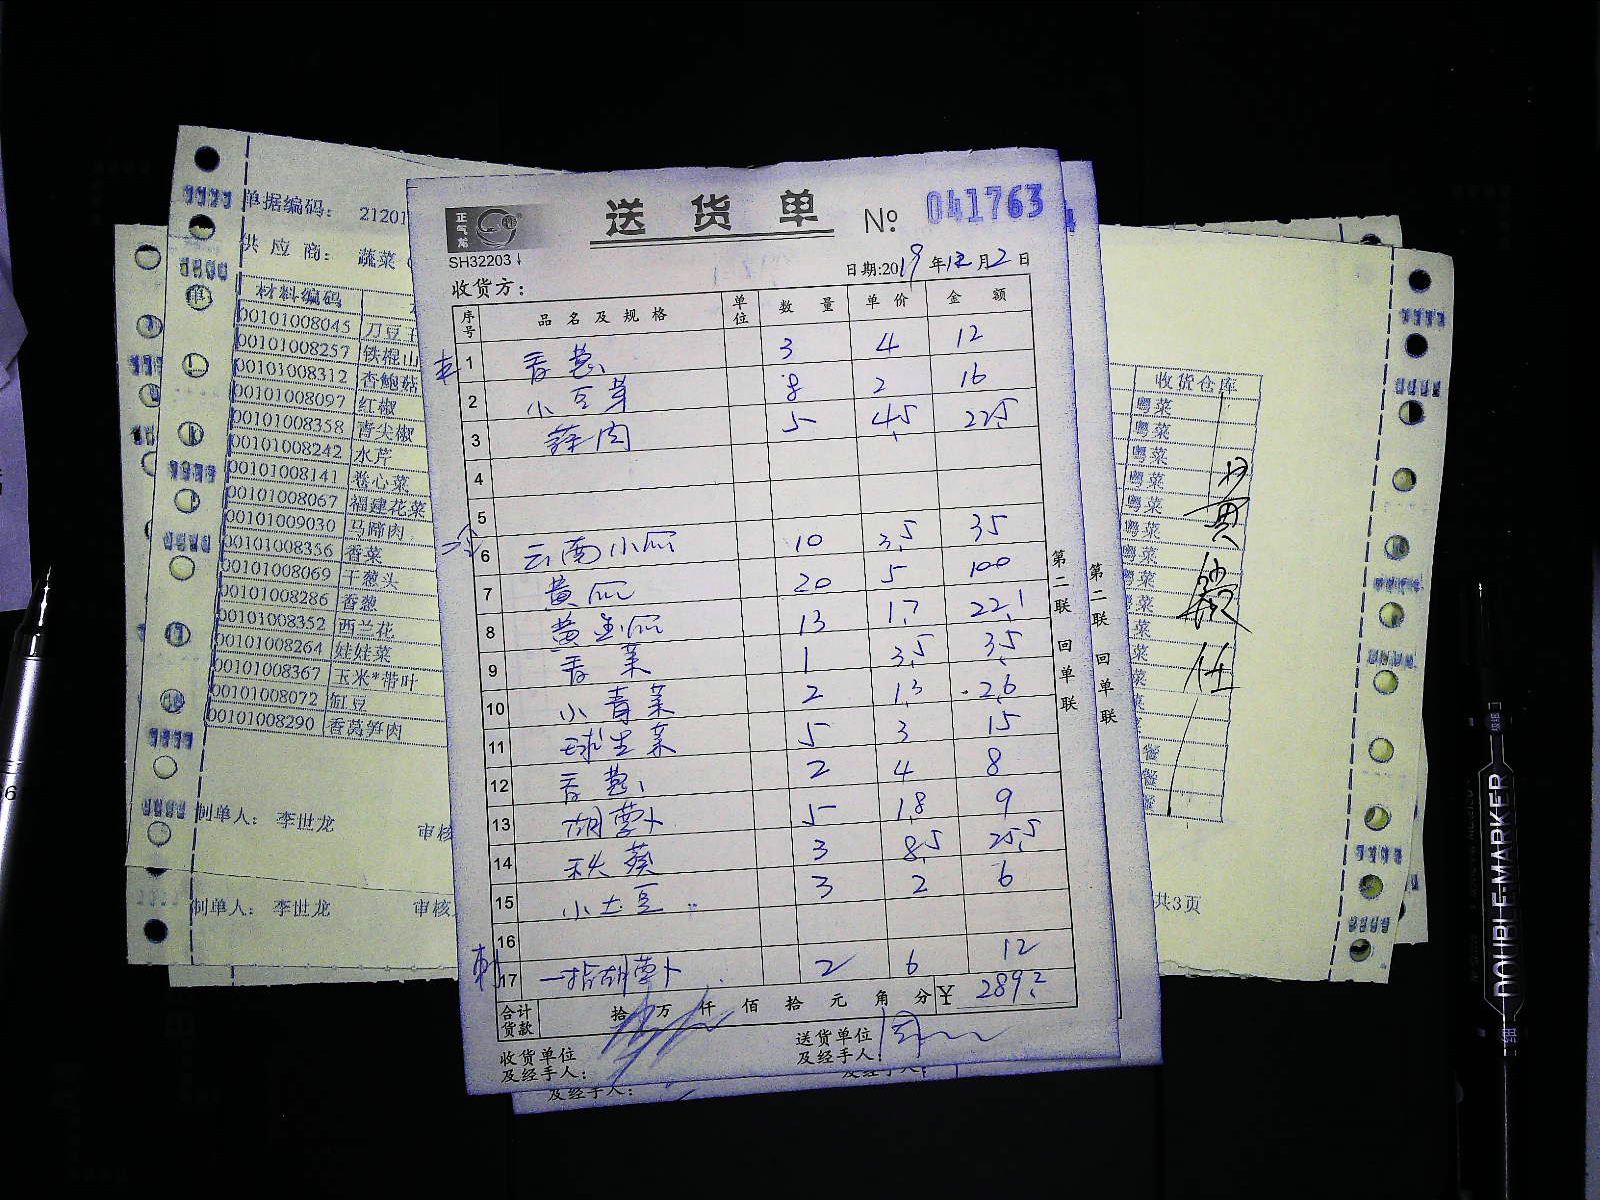 送货单 № 041763
正气
SH32203
日期:2019年12月2日
收货方:
序号 品名及规格 单位 数量 单价 金额
1 香葱 3 4 12
2 小豆芽 8 2 16
3 蒜肉 5 4.5 22.5
4
5
6 云南小瓜 10 3.5 35
7 黄瓜 20 5 100
8 黄金瓜 13 1.7 22.1
9 香菜 1 3.5 3.5
10 小青菜 2 1.3 2.6
11 球生菜 5 3 15
12 香葱 2 4 8
13 胡萝卜 5 1.8 9
14 秋葵 3 8.5 25.5
15 小土豆 3 2 6
16
17 一指胡萝卜 2 6 12
合计货款 拾 万 仟 佰 拾 元 角 分 ¥ 289.2
收货单位及经手人:
送货单位及经手人:
及经手人:
第二联 回单联
第二联 回单联
单据编码: 21201
供应商: 蔬菜
材料编码
00101008045 刀豆
00101008257 铁棍山
00101008312 杏鲍菇
00101008097 红椒
00101008358 青尖椒
00101008242 水芹
00101008141 卷心菜
00101008067 福建花菜
00101009030 马蹄肉
00101008356 香菜
00101008069 干葱头
00101008286 香葱
00101008352 西兰花
00101008264 娃娃菜
00101008367 玉米*带叶
00101008072 缸豆
00101008290 香莴笋肉
制单人: 李世龙 审核
制单人: 李世龙 审核
收货仓库
粤菜
粤菜
粤菜
粤菜
粤菜
粤菜
粤菜
粤菜
粤菜
菜
菜
菜
菜
餐
餐
餐
共3页
DOUBLE MARKER